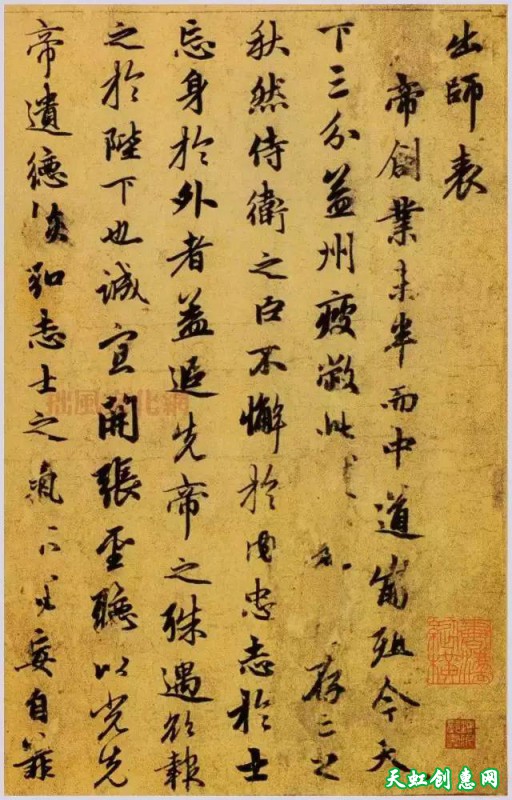 出師表
帝創業未半而中道崩殂今天
下三分益州疲敝此 存亡之
秋然侍衛之臣不懈於内忠志於士
忘身於外者蓋追先帝之殊遇欲報
之於陛下也誠宜開張聖聽以光先
帝遺德恢弘志士之氣不宜妄自菲
拙風文化網
天虹创惠网